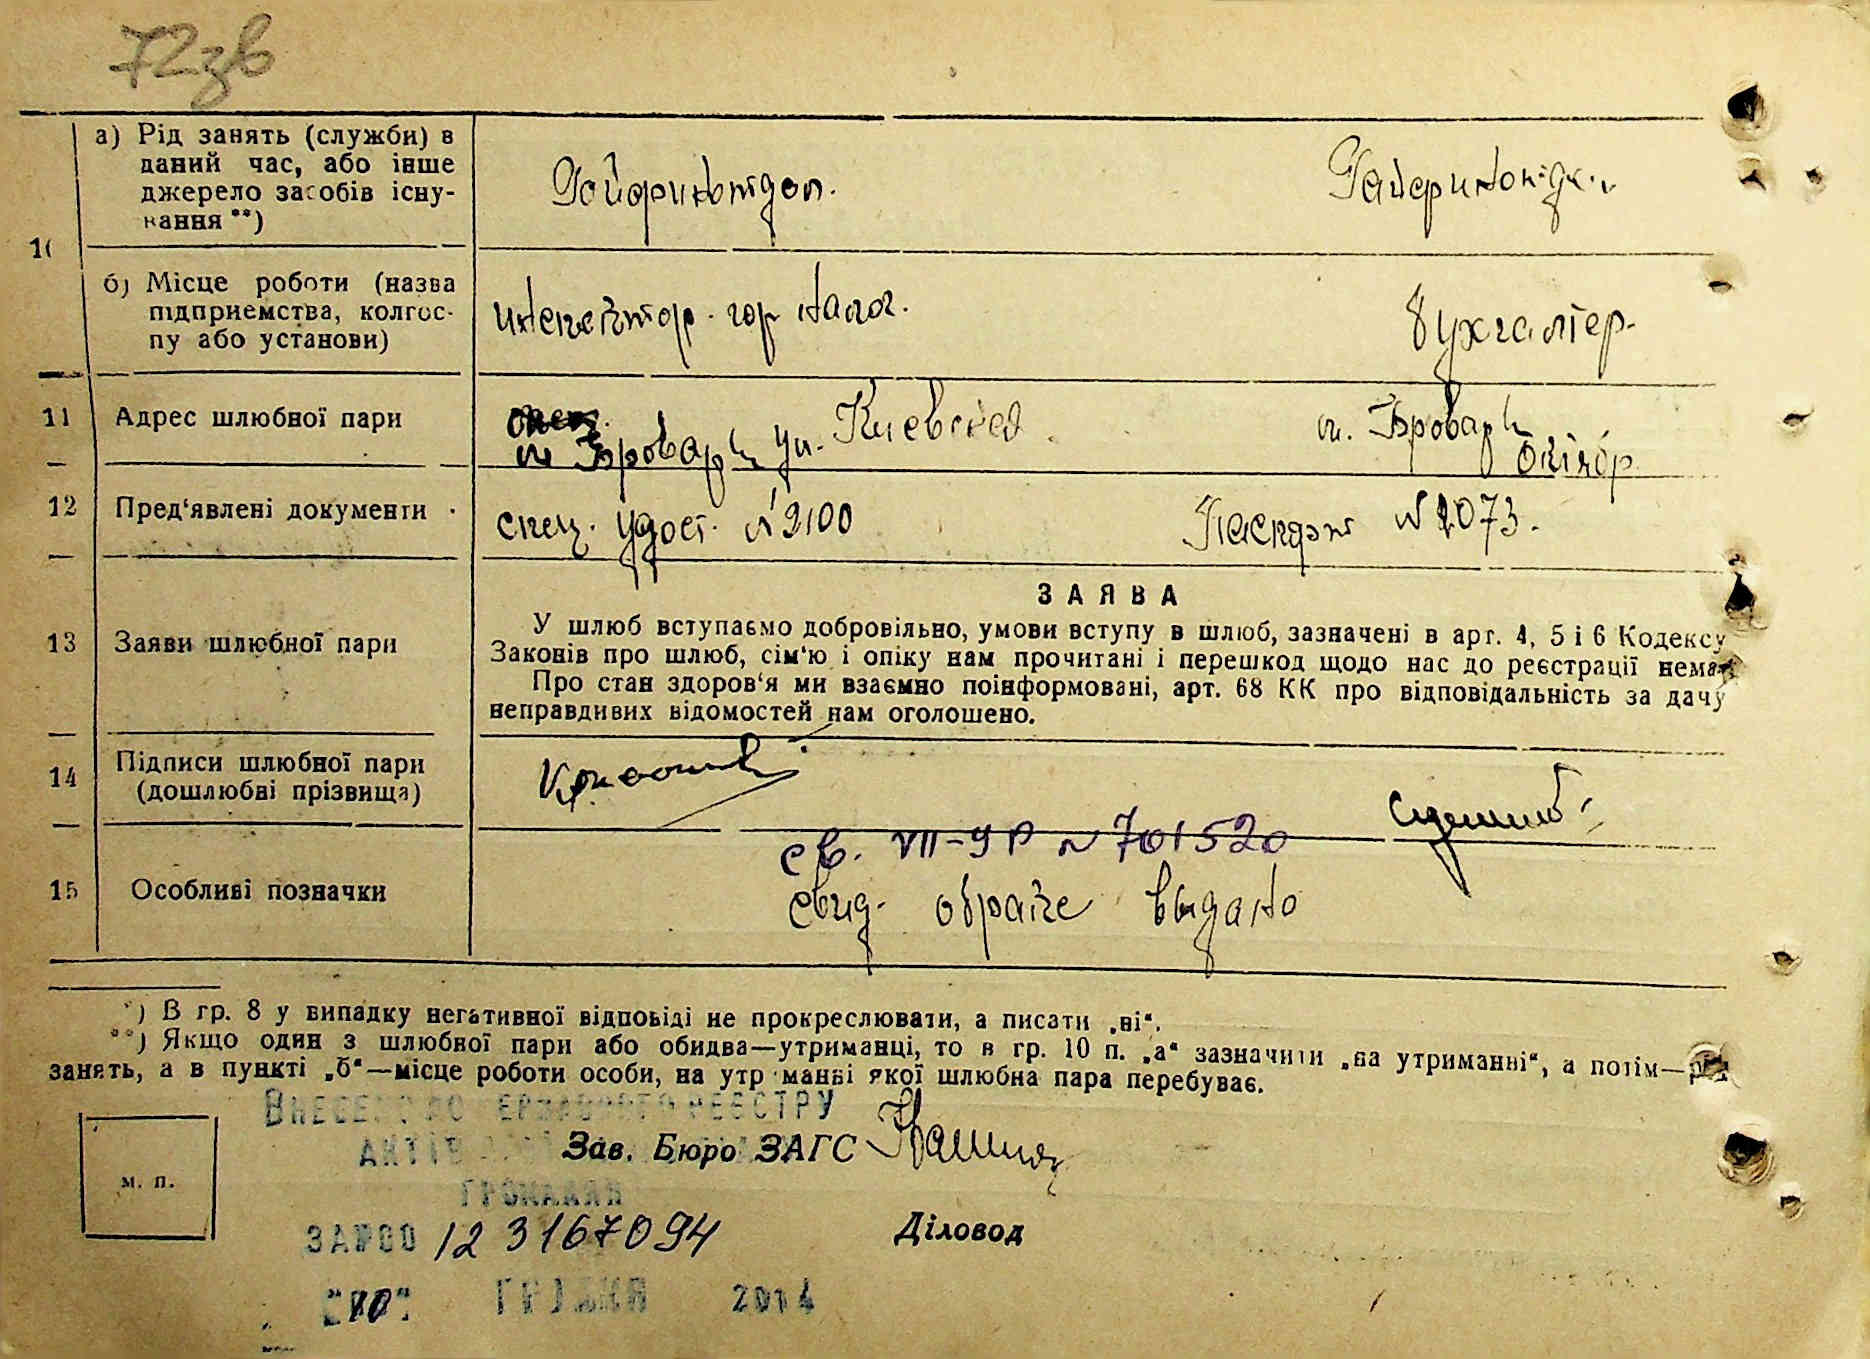 72зв
а) Рід занять (служби) в
даний час, або інше
джерело засобів існу-
вання **)
Гайфинотдел.
10
б) Місце роботи (назва
підприемства, колгос-
пу або установи)
инспектор. гор налог.
Бухгалтер.
11 Адрес шлюбної пари
м Бровары ул. Киевская.
м. Бровары
12 Пред'явлені документи
спец. удост. № 2100
Паспорт № 2073.
ЗАЯВА
13 Заяви шлюбної пари
У шлюб вступаємо добровільно, умови вступу в шлюб, зазначені в арт. 4, 5 і 6 Кодексу
Законів про шлюб, сім'ю і опіку нам прочитані і перешкод щодо нас до реєстрації нема.
Про стан здоров'я ми взаємно поінформовані, арт. 68 КК про відповідальність за дачу
неправдивих відомостей нам оголошено.
14 Підписи шлюбної пари
(дошлюбні прізвища)
св. VII-УР № 701520
15 Особливі позначки
свид. о браке выдано
*) В гр. 8 у випадку негативної відповіді не прокреслювати, а писати „ні“.
**) Якщо один з шлюбної пари або обидва—утриманці, то в гр. 10 п. „а“ зазначити „на утриманні“, а потім—рід
занять, а в пункті „б“—місце роботи особи, на утриманні якої шлюбна пара перебуває.
ВНЕСЕНО ДО ДЕРЖАВНОГО РЕЄСТРУ
АКТІВ
Зав. Бюро ЗАГС
ГРОМАДЯН
м. п.
ЗА №00 123167094
Діловод
"10" ГРУДНЯ 2014